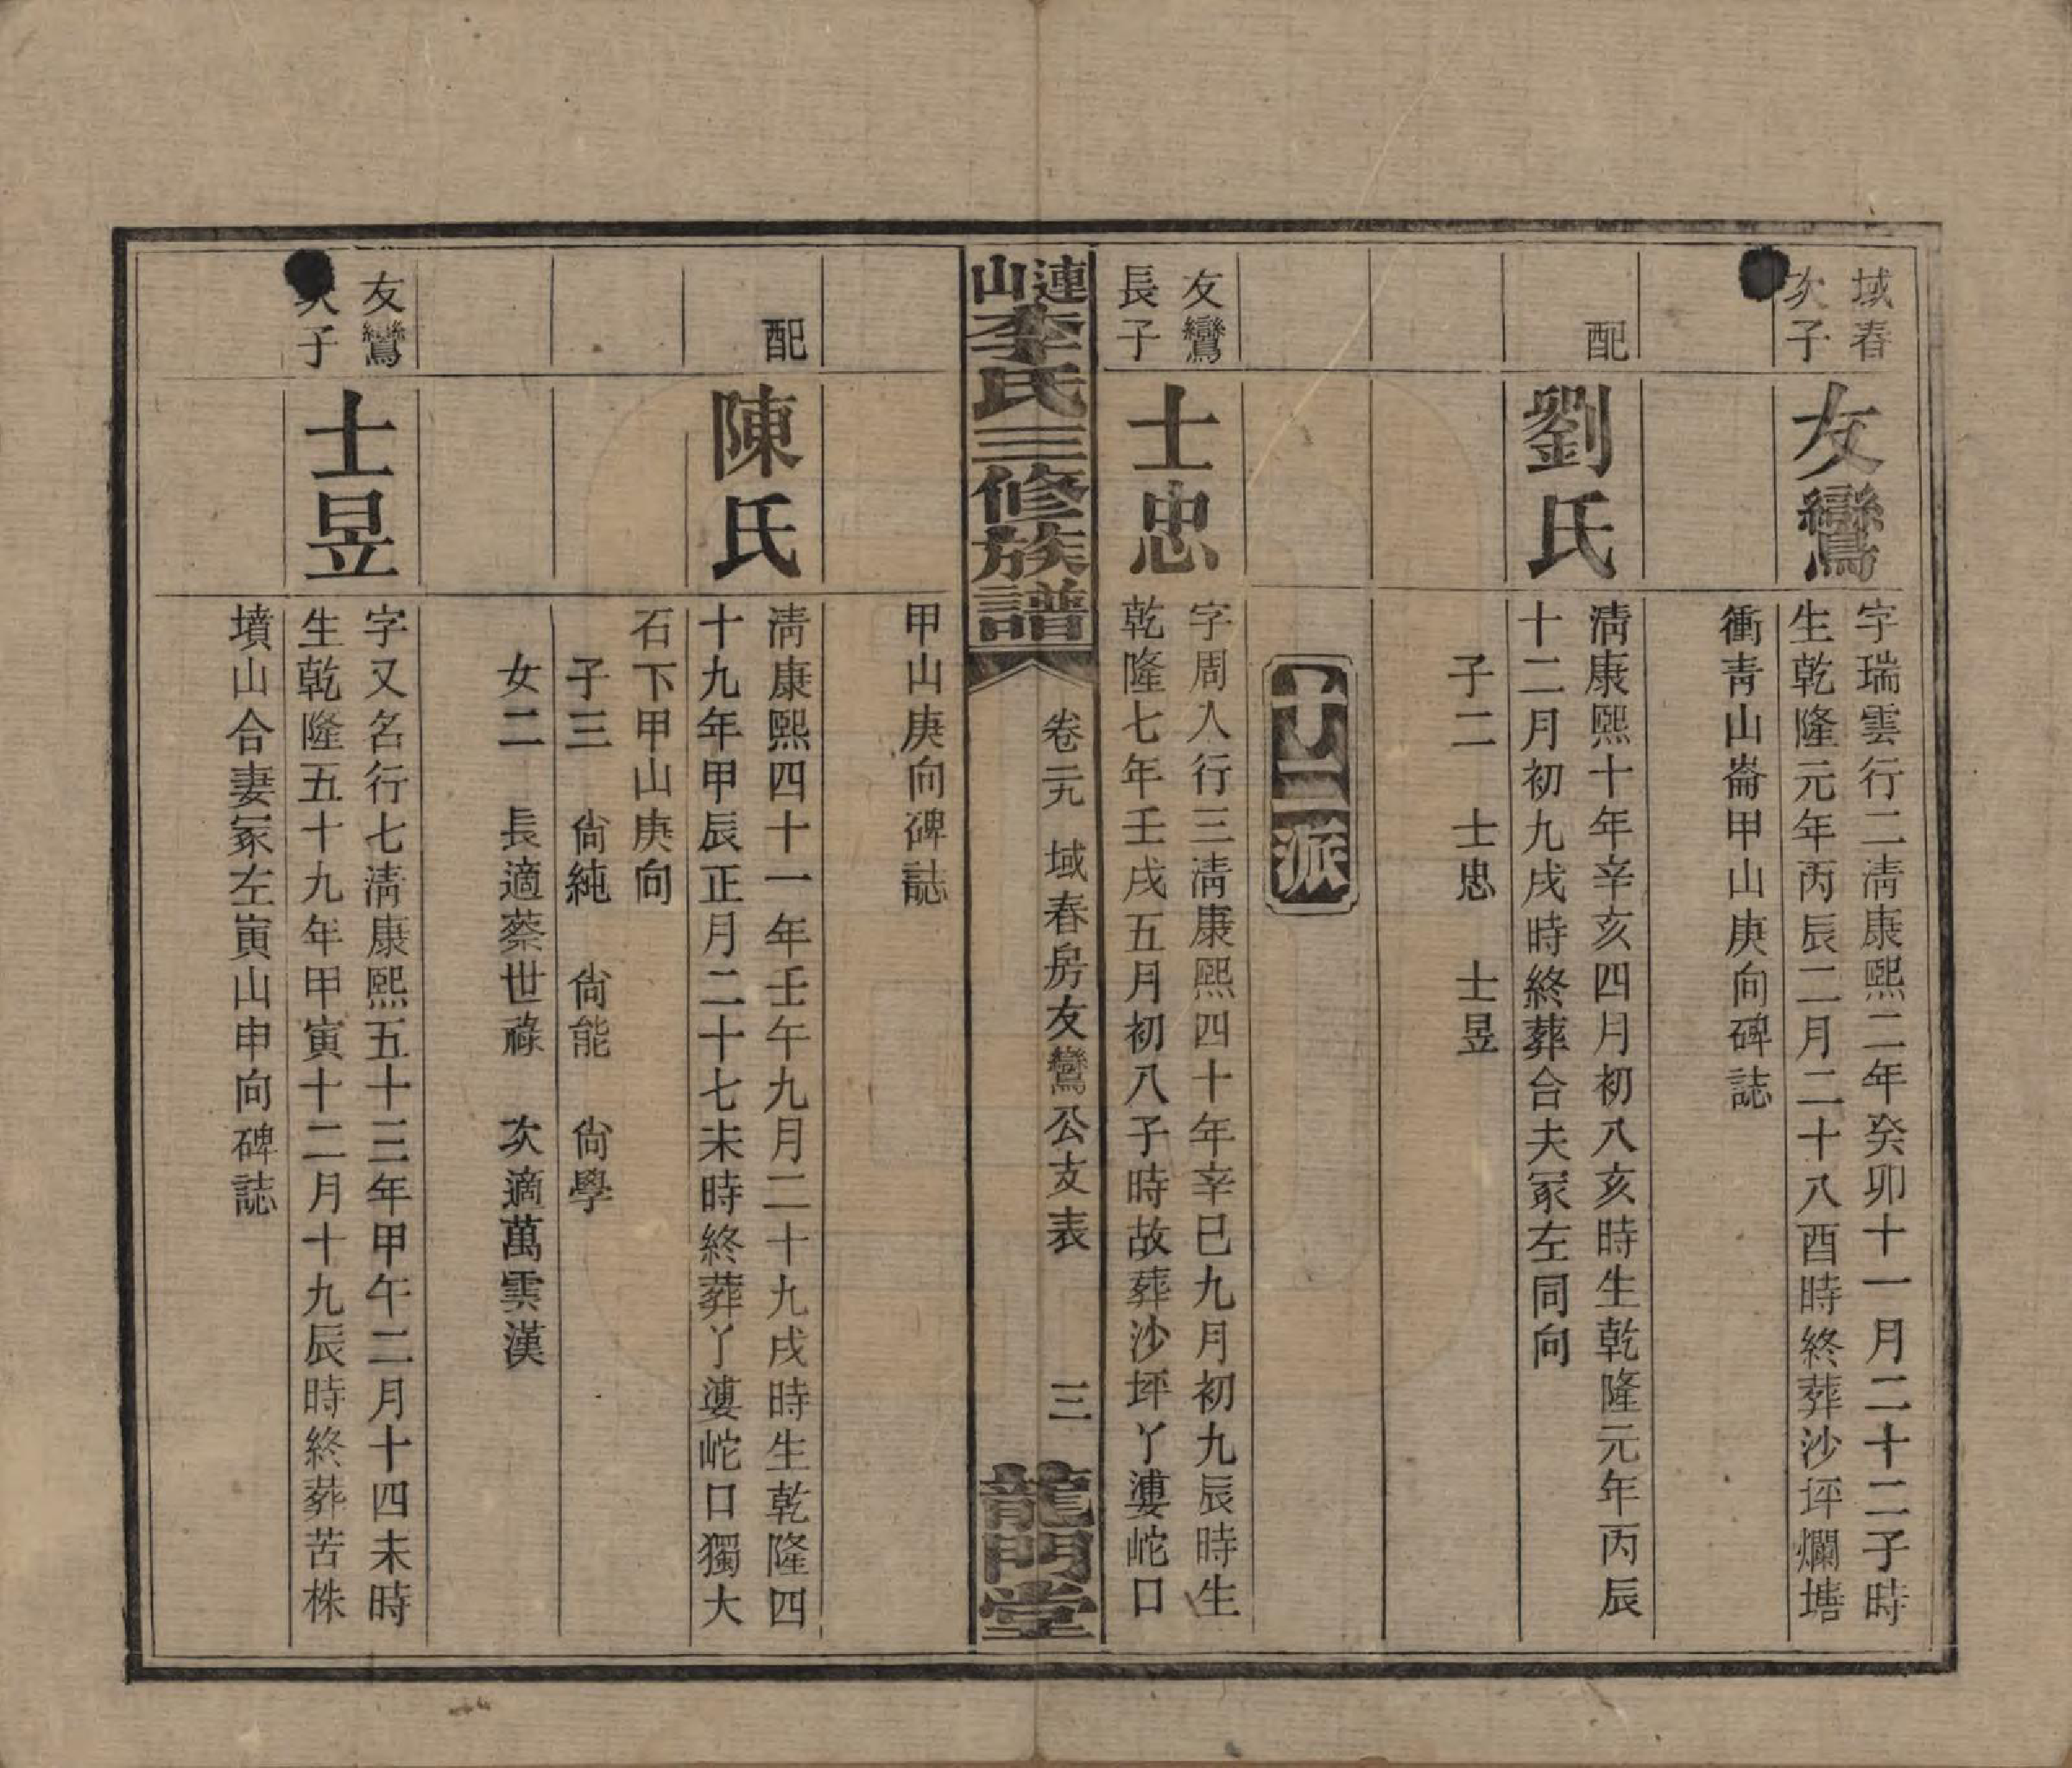 域春
次子
友鸞
字瑞雲行二淸康熙二年癸卯十一月二十二子時
生乾隆元年丙辰二月二十八酉時終葬沙坪爛塘
衝靑山崙甲山庚向碑誌
配
劉氏
淸康熙十年辛亥四月初八亥時生乾隆元年丙辰
十二月初九戌時終葬合夫冢左同向
子二　士忠　士昱
十二派
友鸞
長子
士忠
字周人行三淸康熙四十年辛巳九月初九辰時生
乾隆七年壬戌五月初八子時故葬沙坪丫婁岮口
連山李氏三修族譜
卷二九　域春房友鸞公支表　三
龍門堂
甲山庚向碑誌
配
陳氏
淸康熙四十一年壬午九月二十九戌時生乾隆四
十九年甲辰正月二十七未時終葬丫婁岮口獨大
石下甲山庚向
子三　尙純　尙能　尙學
女二　長適蔡世祿　次適萬雲漢
友鸞
次子
士昱
字又名行七淸康熙五十三年甲午二月十四未時
生乾隆五十九年甲寅十二月十九辰時終葬苦株
墳山合妻冢左寅山申向碑誌